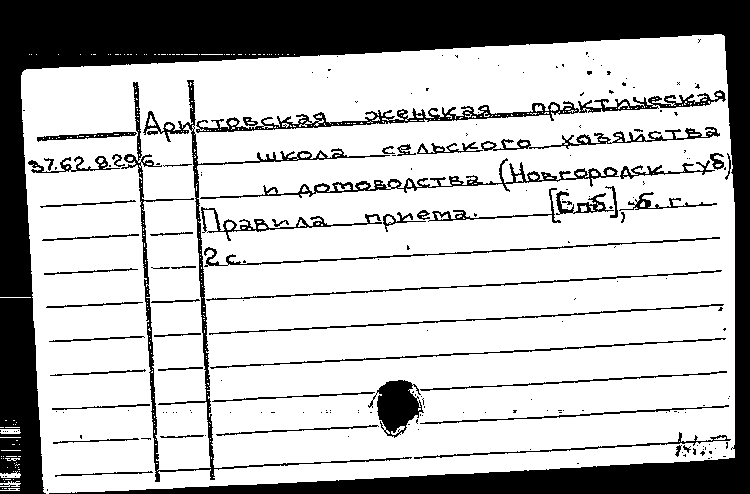 Аристовская женская практическая
37.62.9.296. школа сельского хозяйства
и домоводства. (Новгородск. губ.)
Правила приема. [Спб.], б. г.
2 с.